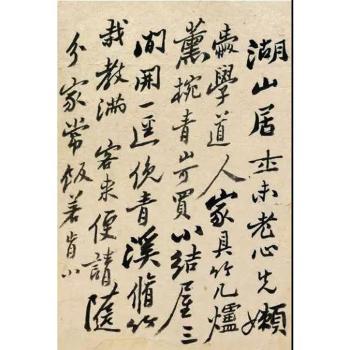 湖山居士未老心先嬾
愛學道人家具竹几爐
薰椀青山可買小結屋三
間開一逕俛青溪脩竹
栽教滿客来便請隨
分家常飯若肯小